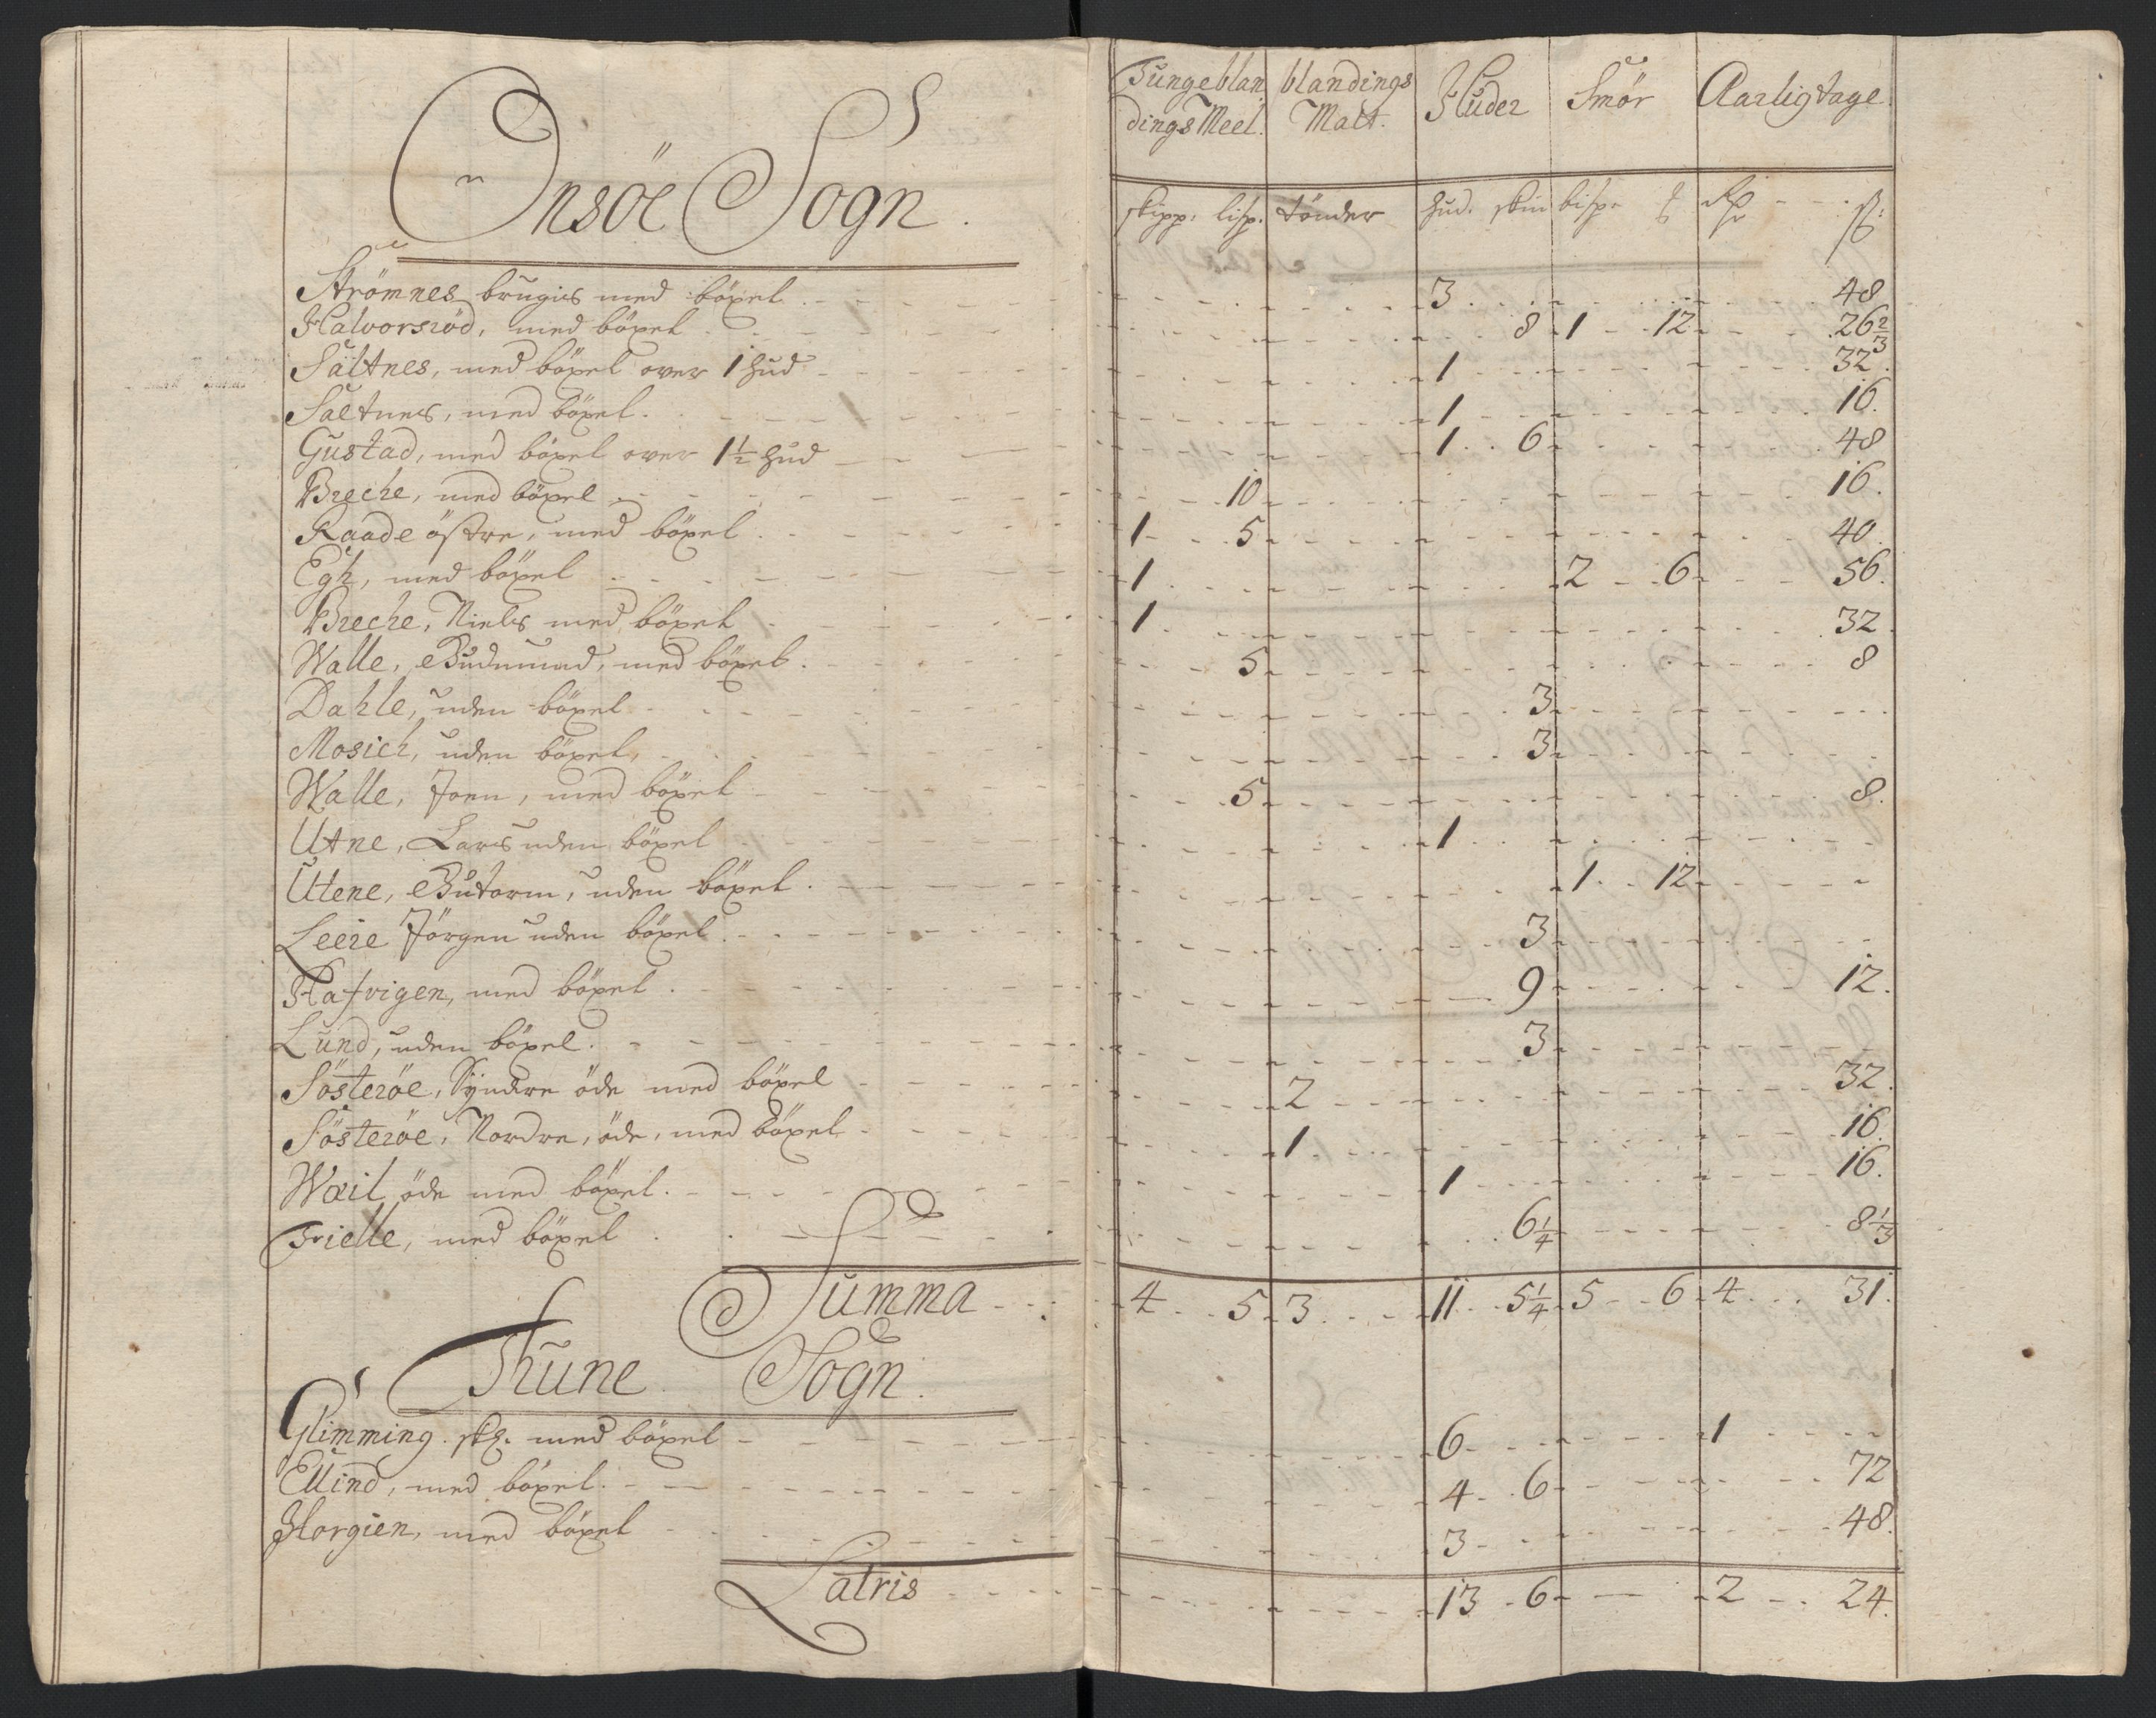 Tungeblan blandings Huder Smör Aarlig tage.
dings Meel. Malt.
Onsöe Sogn.
skipp: lisp. tönder hud. skin bisp.
Strömnes brugis med böxel 3 48
Halvorsröd, med böxel 8 1 12 26 2/3
Saltnes, med böxel over 1 hud 1 32.
Saltnes, med böxel. 1 16.
Gustad, med böxel over 1½ hud 1 6 48
Breche, med böxel 10 16.
Raade östre, med böxel 1 5 40.
Egh, med böxel 1 2 6 56.
Breche, Niels med böxel 1 32.
Walle, med böxel. 5 8
Dahle, uden böxel 3
Mosich, uden böxel, 3
Walle, Joen, med böxel 5 8.
Utne, Lars uden böxel 1
Utene, uden böxel. 1 12
Leere Jörgen uden böxel. 3
Hafvigen, med böxel. 9 12.
Lund, uden böxel. 3
Sösteröe, Syndre öde med böxel 2 32.
Sösteröe, Nordre, öde, med böxel 1 16.
Wæil öde med böxel. 1 16.
Frielle, med böxel 6¼ 8 1/3
Summa 4 5 3 11 5¼ 5 6 4 31.
Thune Sogn.
Glimming. med böxel 6 1
Ellind, med böxel. 4 6 72
Horgien, med böxel 3 48.
Latris 13 6 2 24.